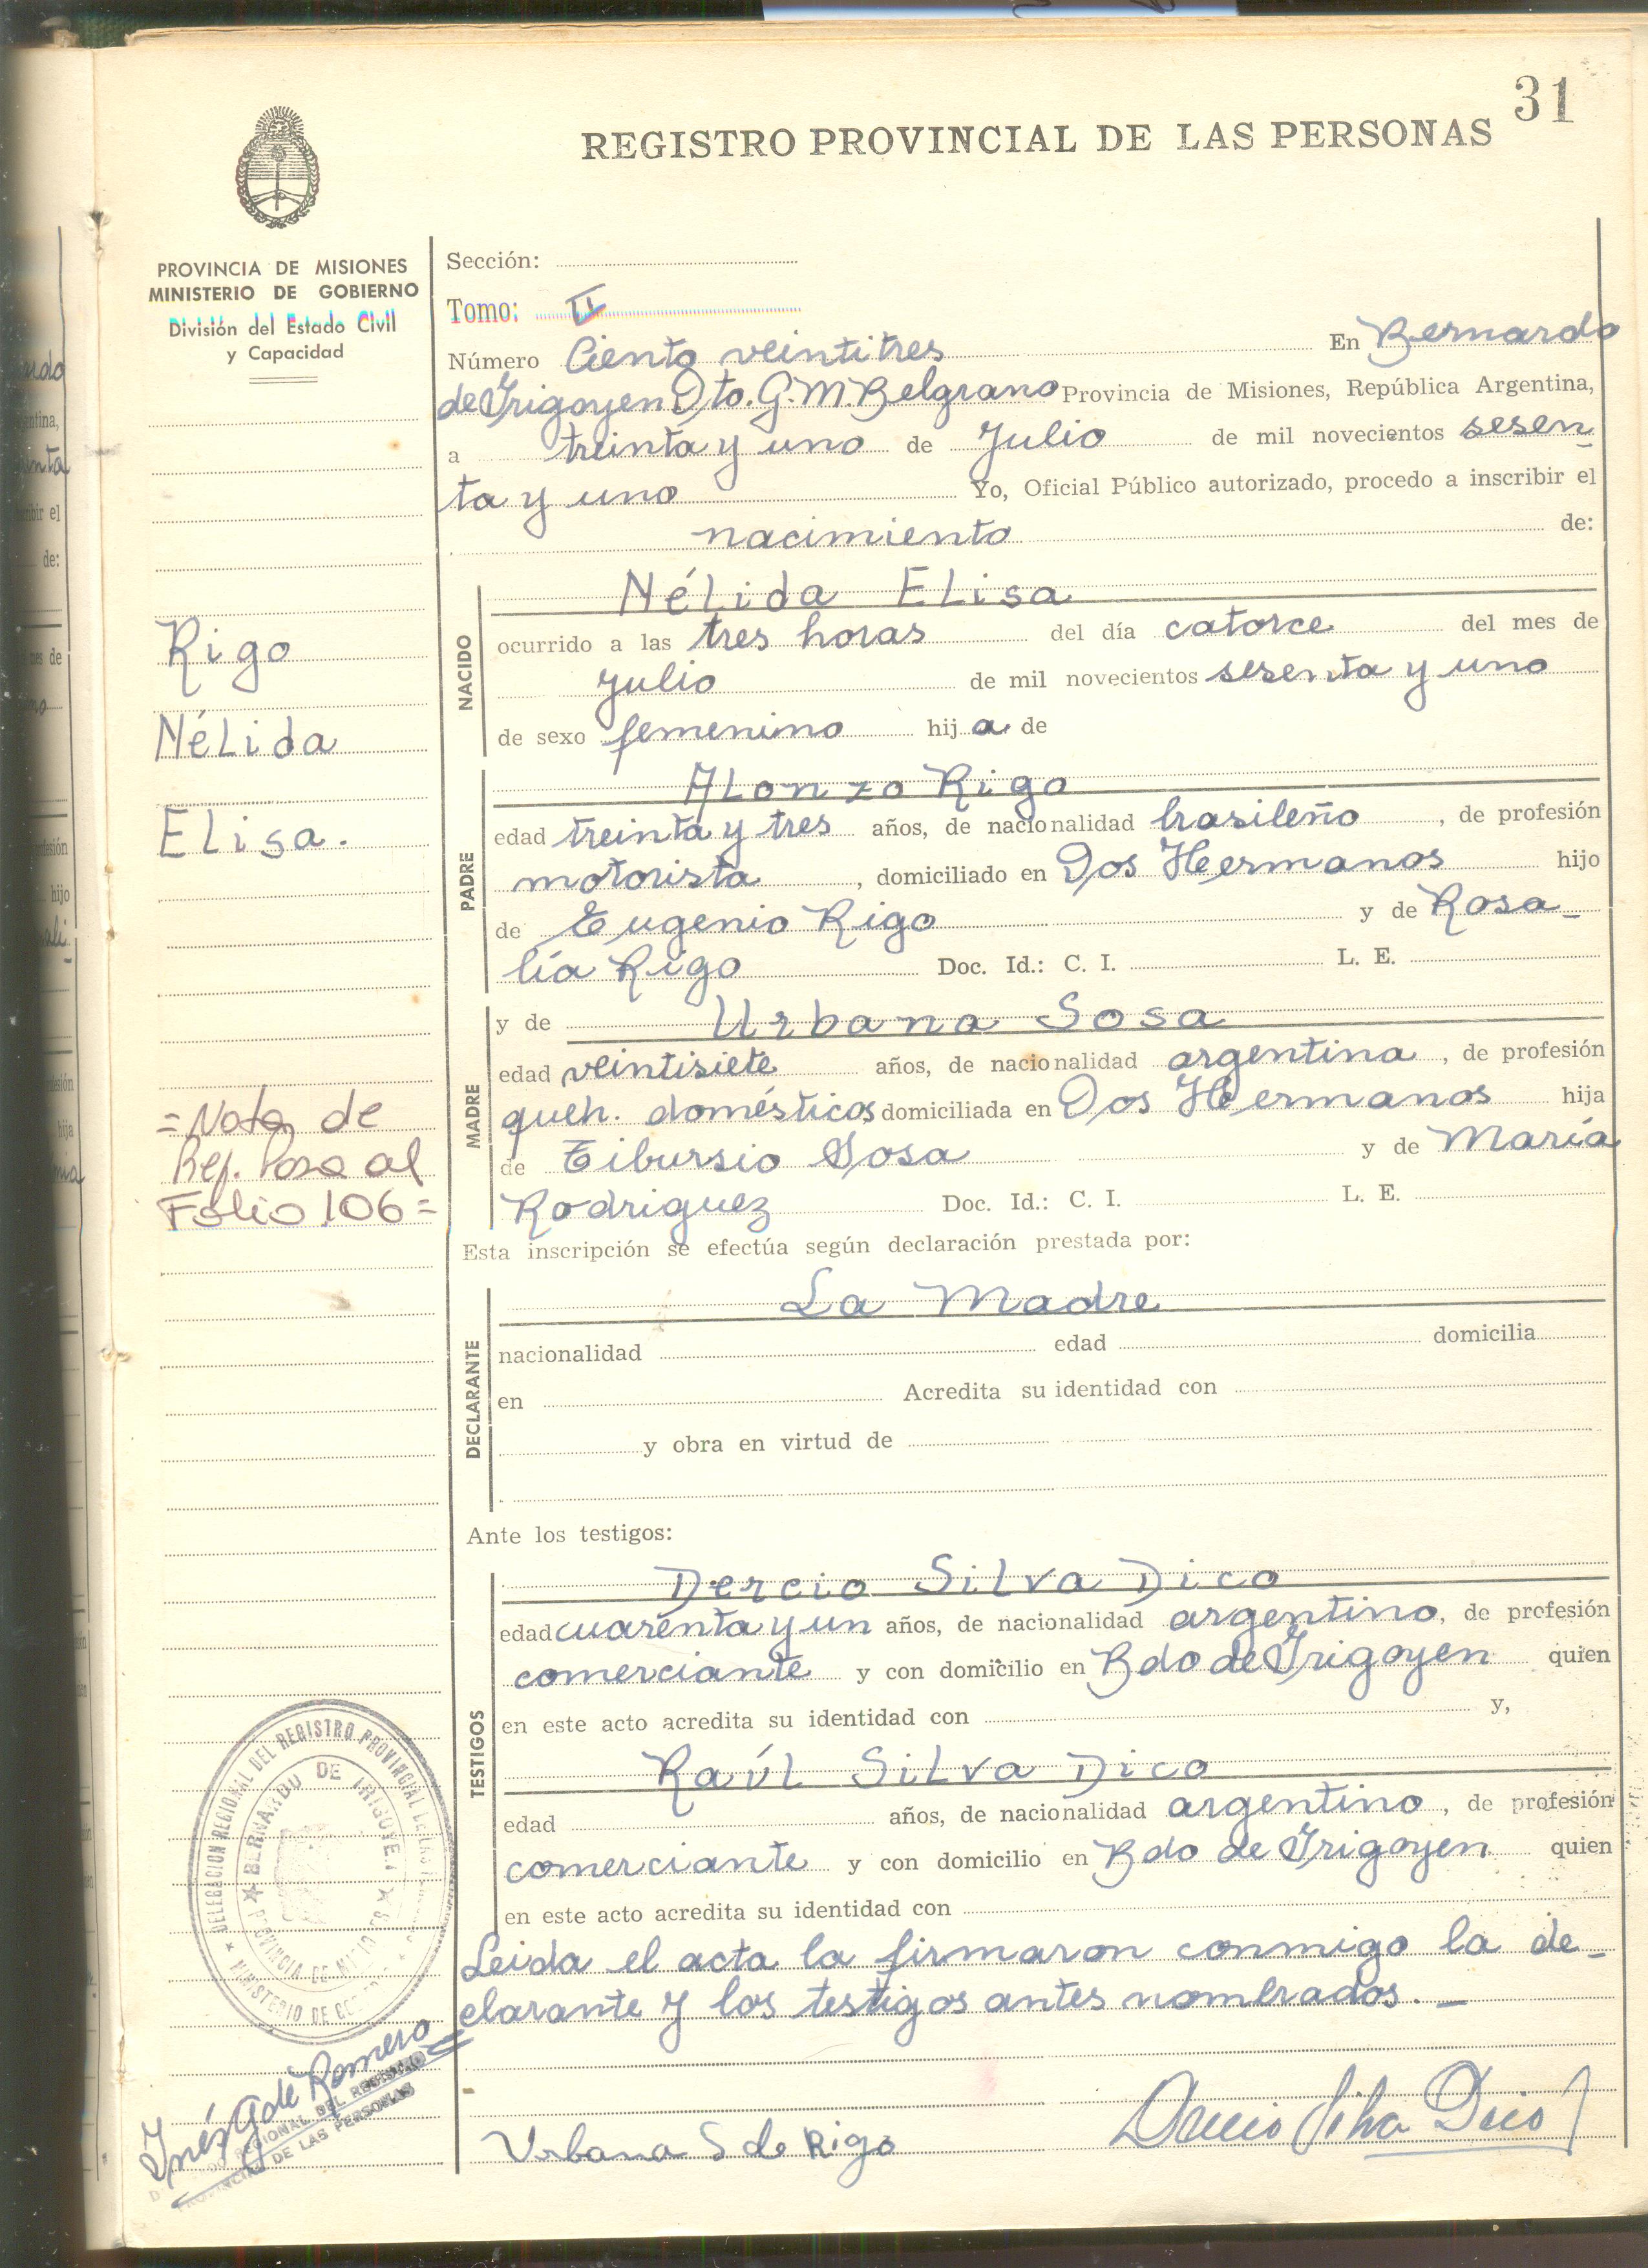 31
REGISTRO PROVINCIAL DE LAS PERSONAS
PROVINCIA DE MISIONES
MINISTERIO DE GOBIERNO
División del Estado Civil
y Capacidad
Sección:
Tomo: II
Número Ciento veintitres En Bernardo
de Irigoyen Dto. G. M. Belgrano Provincia de Misiones, República Argentina,
a treinta y uno de Julio de mil novecientos sesen
ta y uno Yo, Oficial Público autorizado, procedo a inscribir el
nacimiento de:
Rigo
Nélida
Elisa.
NACIDO
Nélida Elisa
ocurrido a las tres horas del día catorce del mes de
Julio de mil novecientos sesenta y uno
de sexo femenino hija de
PADRE
Alonzo Rigo
edad treinta y tres años, de nacionalidad brasileño, de profesión
motorista, domiciliado en Dos Hermanos hijo
de Eugenio Rigo y de Rosa-
lía Rigo Doc. Id.: C. I. L. E.
MADRE
y de Urbana Sosa
edad veintisiete años, de nacionalidad argentina, de profesión
queh. domésticos domiciliada en Dos Hermanos hija
de Tibursio Sosa y de María
Rodriguez Doc. Id.: C. I. L. E.
=Nota de
Ref. Pasa al
Folio 106=
Esta inscripción se efectúa según declaración prestada por:
DECLARANTE
La Madre
nacionalidad edad domicilia
en Acredita su identidad con
y obra en virtud de
Ante los testigos:
TESTIGOS
Dercio Silva Dico
edad cuarenta y un años, de nacionalidad argentino, de profesión
comerciante y con domicilio en Bdo de Irigoyen quien
en este acto acredita su identidad con y,
Raúl Silva Dico
edad años, de nacionalidad argentino, de profesión
comerciante y con domicilio en Bdo de Irigoyen quien
en este acto acredita su identidad con
Leida el acta la firmaron conmigo la de-
clarante y los testigos antes nombrados.-
DELEGACION REGIONAL DEL REGISTRO PROVINCIAL
BERNARDO DE IRIGOYEN
PROVINCIA DE MISIONES
MINISTERIO DE
Inés G de Romero
REGIONAL DEL REGISTRO
DE LAS PERSONAS
Urbana S de Rigo
Dercio Silva Dico